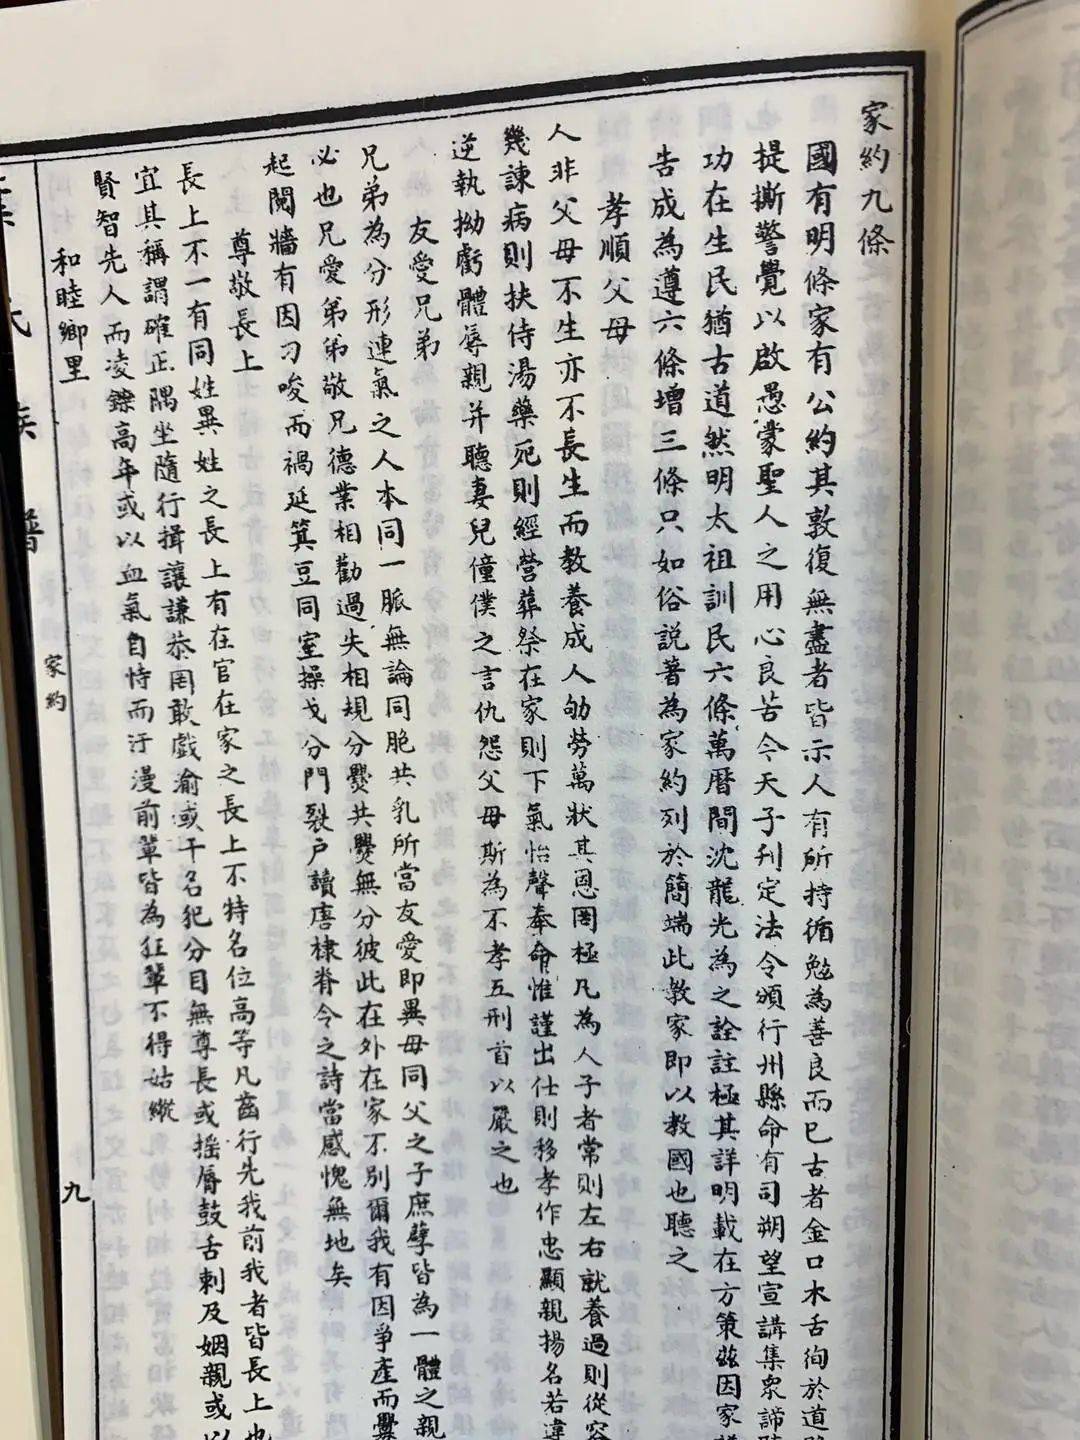 家約九條
國有明條家有公約其敦復無盡者皆示人有所持循勉為善良而已古者金口木舌徇於道
提撕警覺以啟愚蒙聖人之用心良苦今天子刊定法令頒行州縣命有司朔望宣講集眾諦
功在生民猶古道然明太祖訓民六條萬曆間沈龍光為之詮註極其詳明載在方策茲因家
告成為遵六條增三條只如俗説著為家約列於簡端此教家即以教國也聽之
孝順父母
人非父母不生亦不長生而教養成人劬勞萬狀其恩罔極凡為人子者常則左右就養過則從容
幾諫病則扶侍湯藥死則經營葬祭在家則下氣怡聲奉命惟謹出仕則移孝作忠顯親揚名若違
逆執拗虧體辱親并聽妻兒僮僕之言仇怨父母斯為不孝五刑首以嚴之也
友愛兄弟
兄弟為分形連氣之人本同一脈無論同胞共乳所當友愛即異母同父之子庶孽皆為一體之親
必也兄愛弟弟敬兄德業相勸過失相規分爨共爨無分彼此在外在家不別爾我有因爭產而
起鬩牆有因刁唆而禍延箕豆同室操戈分門裂戶讀唐棣脊令之詩當感愧無地矣
尊敬長上
長上不一有同姓異姓之長上有在官在家之長上不特名位高等凡齒行先我前我者皆長上也
宜其稱謂確正隅坐隨行揖讓謙恭罔敢戲渝或干名犯分目無尊長或摇脣鼓舌刺及姻親或以
賢智先人而凌鑠高年或以血氣自恃而汙漫前輩皆為狂輩不得姑縱
和睦鄉里
氏族譜
家約
九